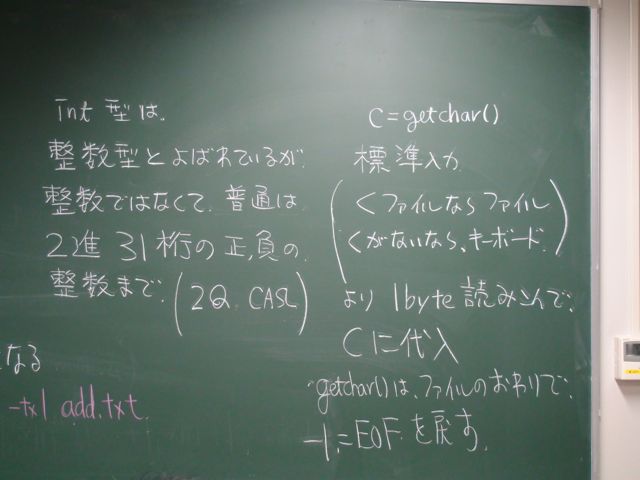 int 型は.
整数型とよばれているが.
整数ではなくて. 普通は.
2進 31桁の正,負の.
整数まで. (2Q. CASL)
なる
add.txt.
c=getchar()
標準入力.
(<ファイルならファイル
<がないなら、キーボード.)
より 1byte 読みこんで.
Cに代入
getchar()は、ファイルのおわりで.
-1,=EOF.を戻す.